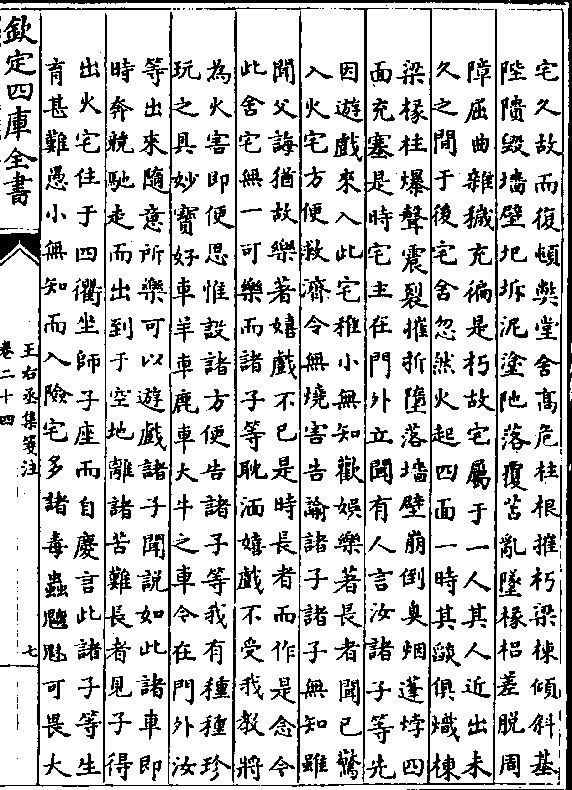 宅久故而復頓弊堂舍高危柱根摧朽梁棟傾斜基
陛隤毀墻壁圮坼泥塗阤落覆苫亂墜椽梠差脫周
障屈曲雜穢充徧是朽故宅屬于一人其人近出未
久之間于後宅舍忽然火起四面一時其燄俱熾棟
梁椽柱爆聲震裂摧折墮落墻壁崩倒臭烟蓬㶿四
面充塞是時宅主在門外立聞有人言汝諸子等先
因遊戲來入此宅稚小無知歡娛樂著長者聞已驚
入火宅方便救濟令無燒害告諭諸子諸子無知雖
聞父誨猶故樂著嬉戲不已是時長者而作是念今
此舍宅無一可樂而諸子等耽湎嬉戲不受我教將
為火害即便思惟設諸方便告諸子等我有種種珍
玩之具妙寶好車羊車鹿車大牛之車令在門外汝
等出來隨意所樂可以遊戲諸子聞說如此諸車即
時奔競馳走而出到于空地離諸苦難長者見子得
出火宅住于四衢坐師子座而自慶言此諸子等生
育甚難愚小無知而入險宅多諸毒蟲魑魅可畏大
欽定四庫全書
王右丞集箋注
卷二十四
七